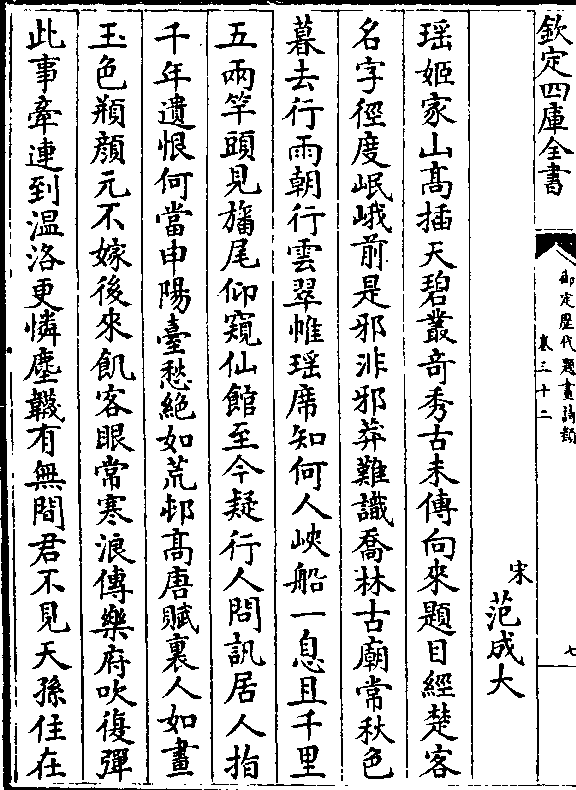 欽定四庫全書
御定歷代題畫詩類
卷三十二
七
宋
范成大
瑶姬家山高插天碧叢竒秀古未傳向來題目經楚客
名字徑度岷峨前是邪非邪莽難識喬林古廟常秋色
暮去行雨朝行雲翠帷瑶席知何人峽船一息且千里
五兩竿頭見旛尾仰窺仙館至今疑行人問訊居人指
千年遺恨何當申陽臺愁絶如荒邨高唐賦裏人如畫
玉色頩顔元不嫁後來飢客眼常寒浪傳樂府吹復彈
此事牽連到温洛更憐塵韈有無間君不見天孫住在